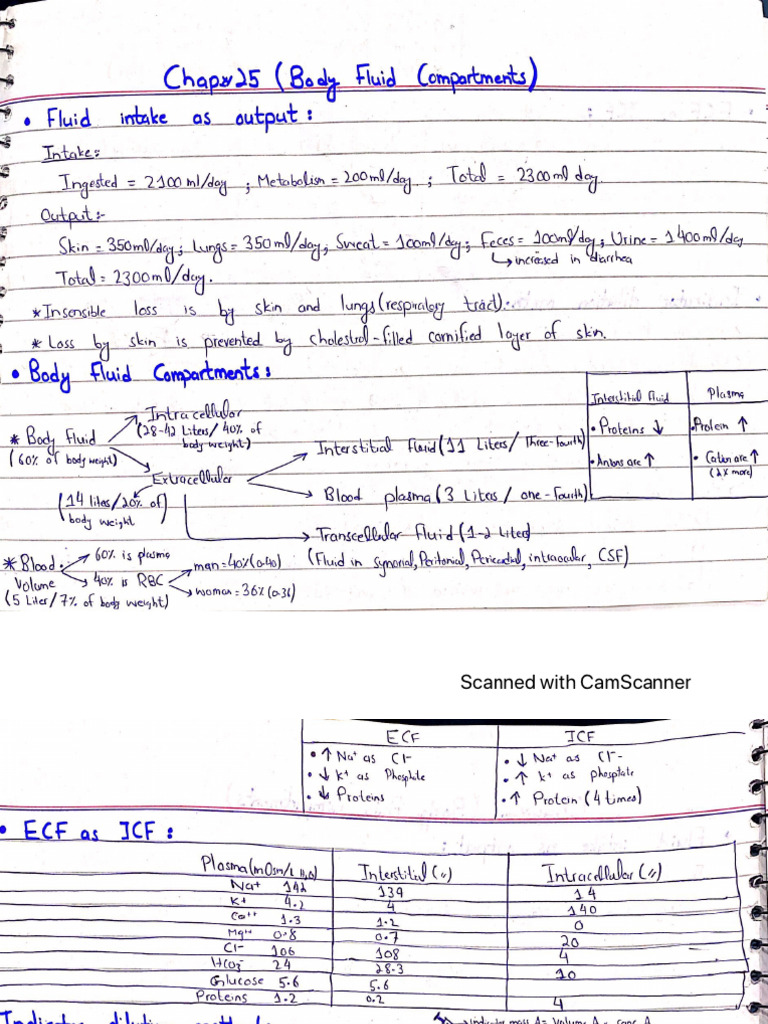 Chap#25 (Body Fluid Compartments)
• Fluid intake as output :
Intake:
Ingested = 2100ml/day ; Metabolism = 200ml/day ; Total = 2300ml day.
Output:-
Skin = 350ml/day ; Lungs = 350ml/day ; Sweat = 100ml/day ; Feces = 100ml/day ; Urine = 1400ml/day
↳ increased in diarrhea
Total = 2300ml/day.
* Insensible loss is by skin and lungs (respiratory tract).
* Loss by skin is prevented by cholestrol-filled cornified layer of skin.
• Body Fluid Compartments :
Interstitial Fluid | Plasma
• Proteins ↓ | • Protein ↑
• Anions are ↑ | • Cation are ↑ (2x more)
* Body Fluid (60% of body weight)
Intracellular (28-42 Liters/ 40% of body weight)
Extracellular (14 liters/20% of body weight)
Interstitial Fluid (11 Liters/ Three-fourth)
Blood plasma (3 Liters / one-fourth)
Transcellular Fluid (1-2 Liter)
(Fluid in Synovial, Peritonial, Pericardial, intraocular, CSF)
* Blood Volume (5 Liter/7% of body weight)
60% is plasma
40% is RBC
man = 40% (0.40)
woman = 36% (0.36)
Scanned with CamScanner
ECF | ICF
• ↑ Na⁺ as Cl⁻ | • ↓ Na⁺ as Cl⁻
• ↓ K⁺ as Phosphate | • ↑ K⁺ as phosphate
• ↓ Proteins | • ↑ Protein (4 times)
• ECF as ICF :
Plasma (mOsm/L H₂O) | Interstitial (") | Intracellular (")
Na⁺ 142 | 139 | 14
K⁺ 4.2 | 4 | 140
Ca⁺⁺ 1.3 | 1.2 | 0
Mg⁺⁺ 0.8 | 0.7 | 20
Cl⁻ 106 | 108 | 4
HCO₃⁻ 24 | 28.3 | 10
Glucose 5.6 | 5.6
Proteins 1.2 | 0.2 | 4